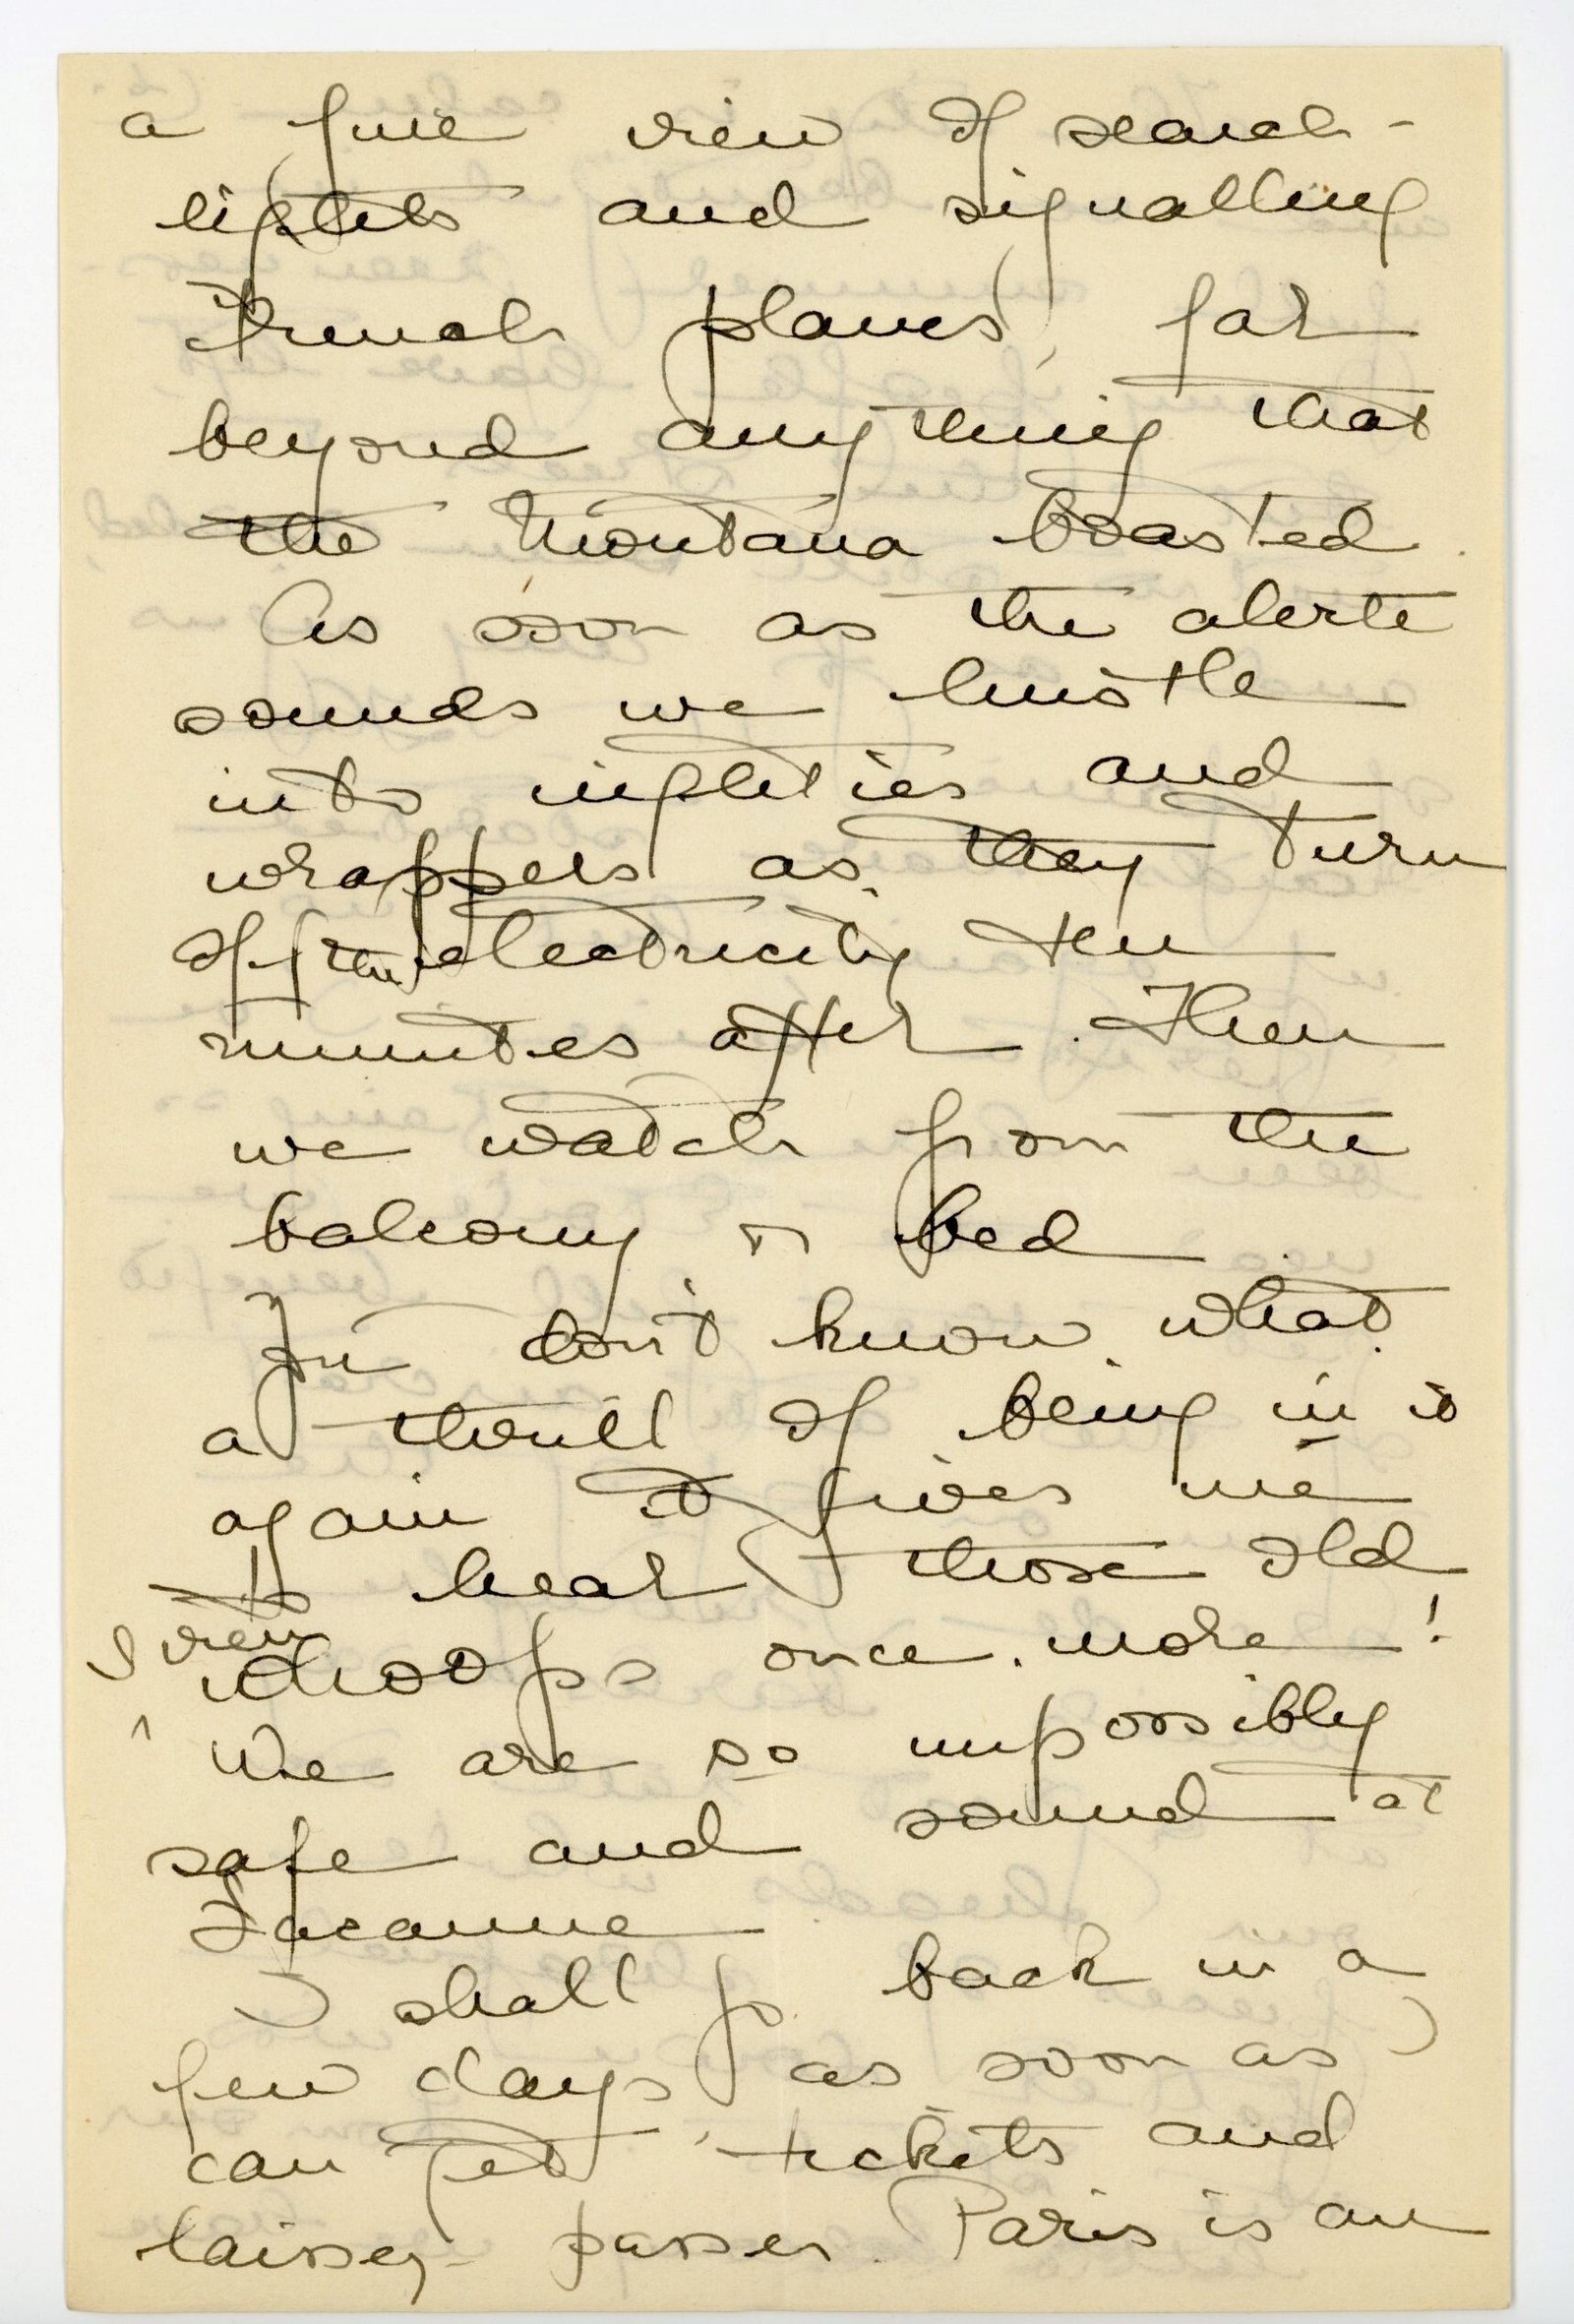 a fine view of search-
lights and signalling
French planes, far
beyond anything that
the Montana boasted.
As soon as the alerte
sounds we hustle
into nighties and
wrappers as they turn
off the electricity ten
minutes after. Then
we watch from the
balcony or bed
You don't know what
a thrill of being in it
again it gives me
to hear those old
whoops once more!
We are so impossibly
safe and sound at
Lacanne
I shall go back in a
few days as soon as I
can get tickets and
laissez-passer. Paris is an